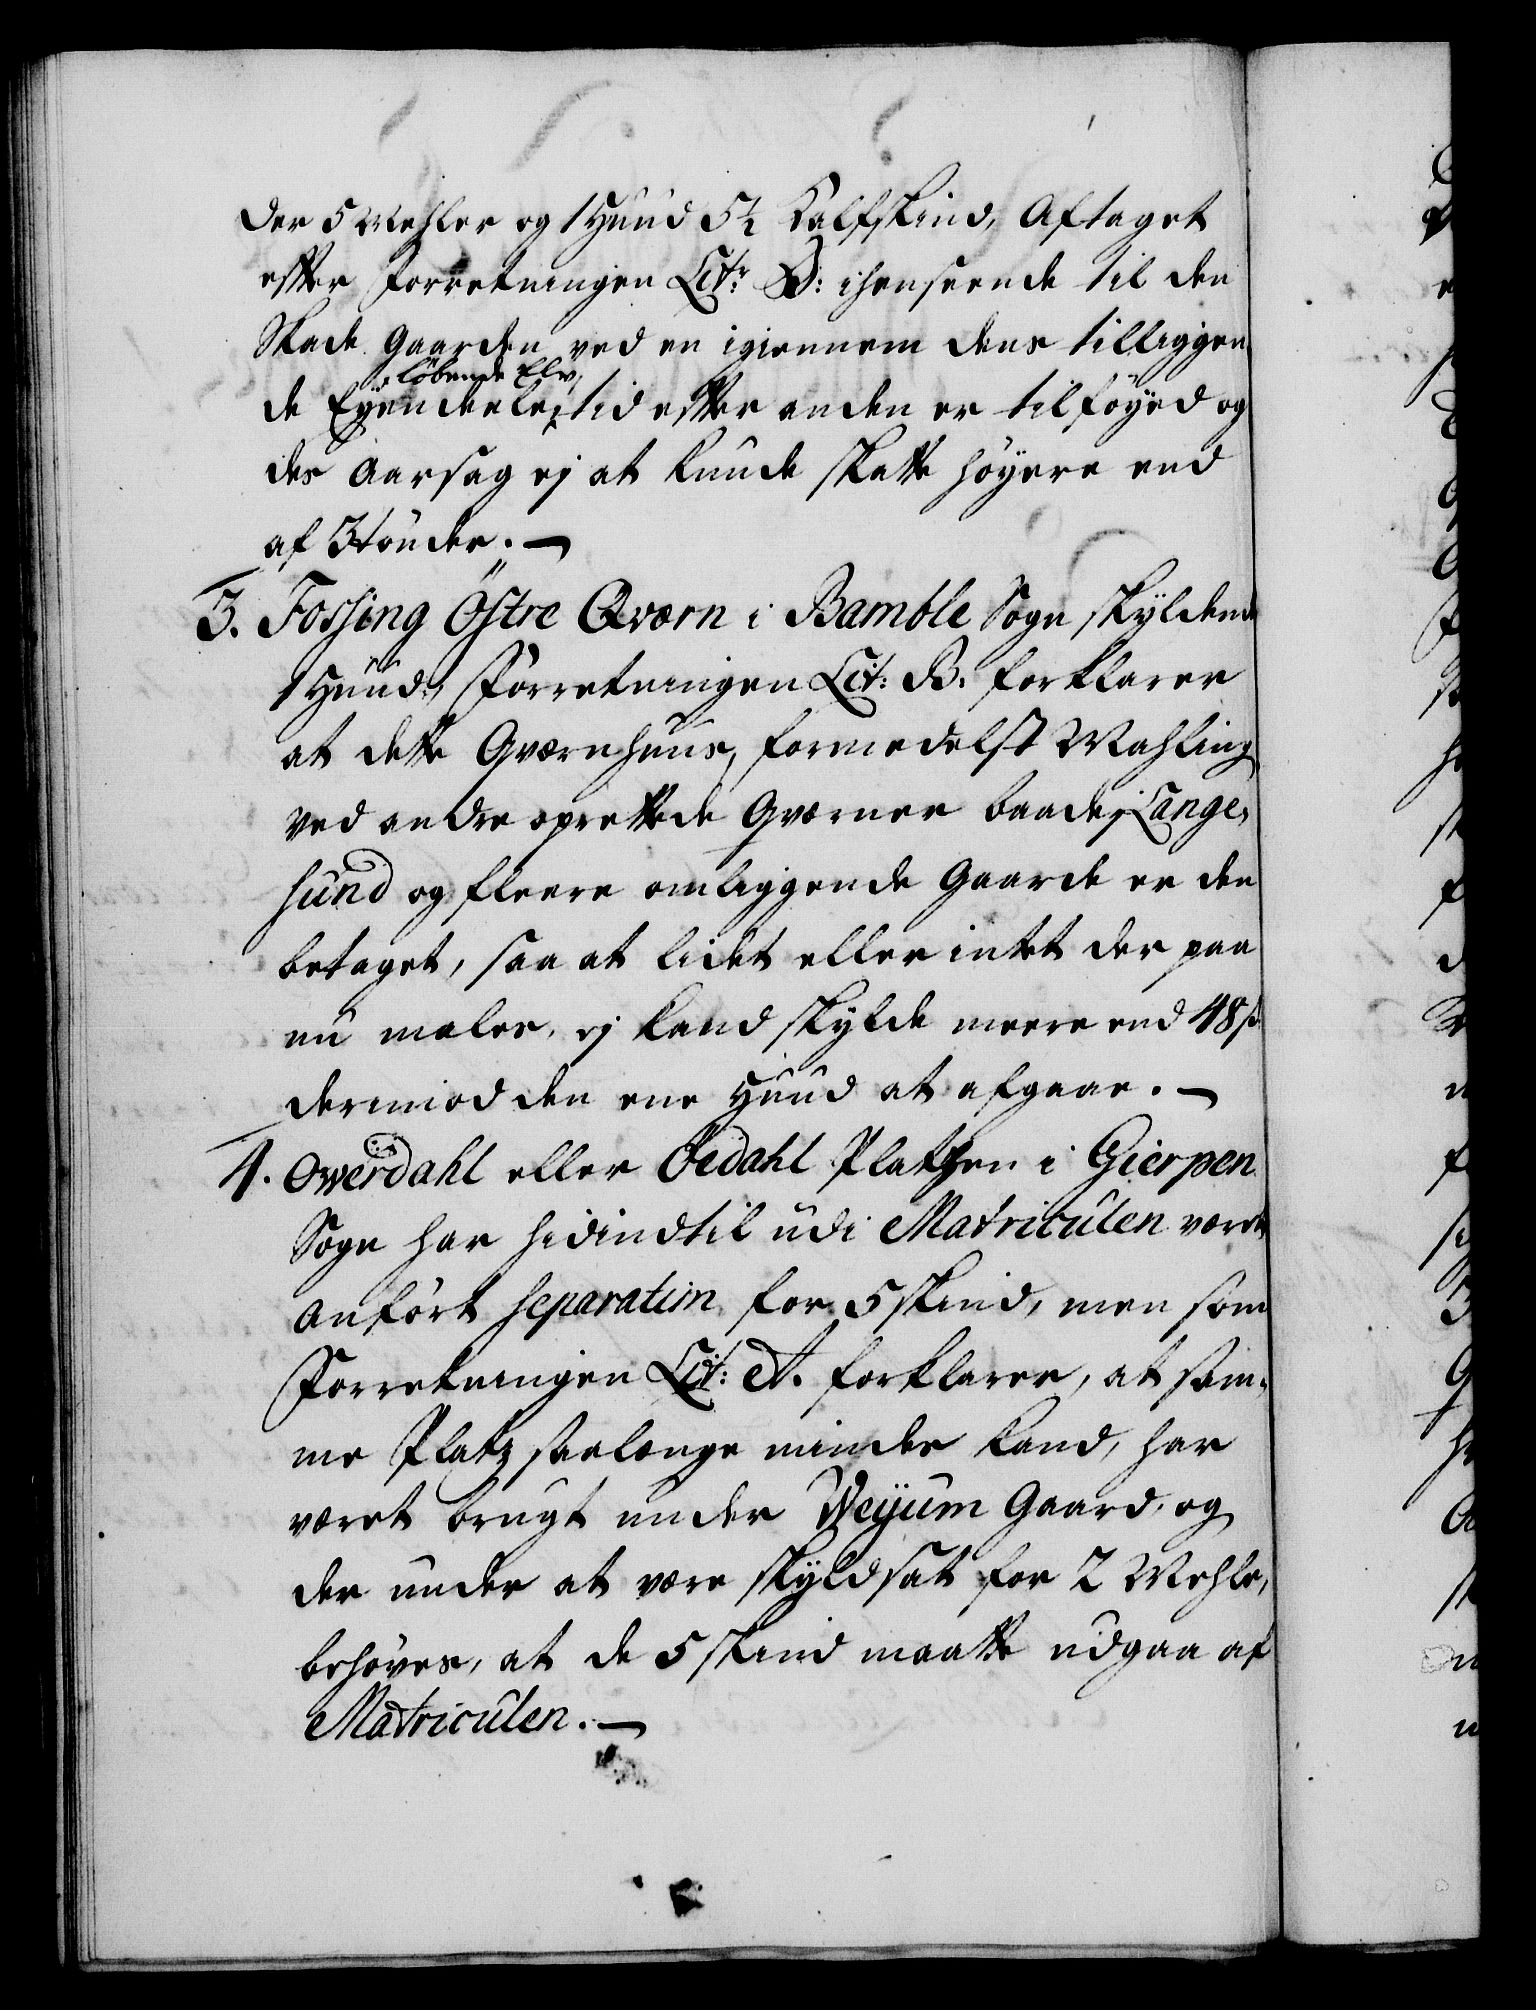 der 5 Mehler og 1 Huud 5½ Kalfskind, Aftaget
efter Forretningen Litr: D: ihenseende til den
Skade Gaarden ved en igiennem dens tilliggen
de Eyendeele löbende Elv, tid efter anden er tilföyed og
des Aarsag ej at kunde skatte höyere end
af 3 tönder. —
3. Fossing Östre Qværn i Bamble Sogn skyldende
1 Huud, Forretningen Lit: B. forklarer
at dette Qværnhuus, formedelst Mahling
ved andre oprettede Qværner baade i Lange-
sund og fleere omliggende Gaarde er den
betaget, saa at lidet eller intet der paa
nu males, ej kand skylde meere end 48 s
dermod den ene Huud at afgaae. —
4. Overdahl eller Öedahl Platzen i Gierpen
Sogn har hidindtil udi Matriculen været
anfört separatim for 5 skind, men som
Forretningen Lit: A. forklarer, at sam-
me Platz saalænge mindes kand, har
været brugt under Weyum Gaard, og
der under at være skyldsat for 2 Mehle,
behöves, at de 5 skind maatte udgaa af
Matriculen. —